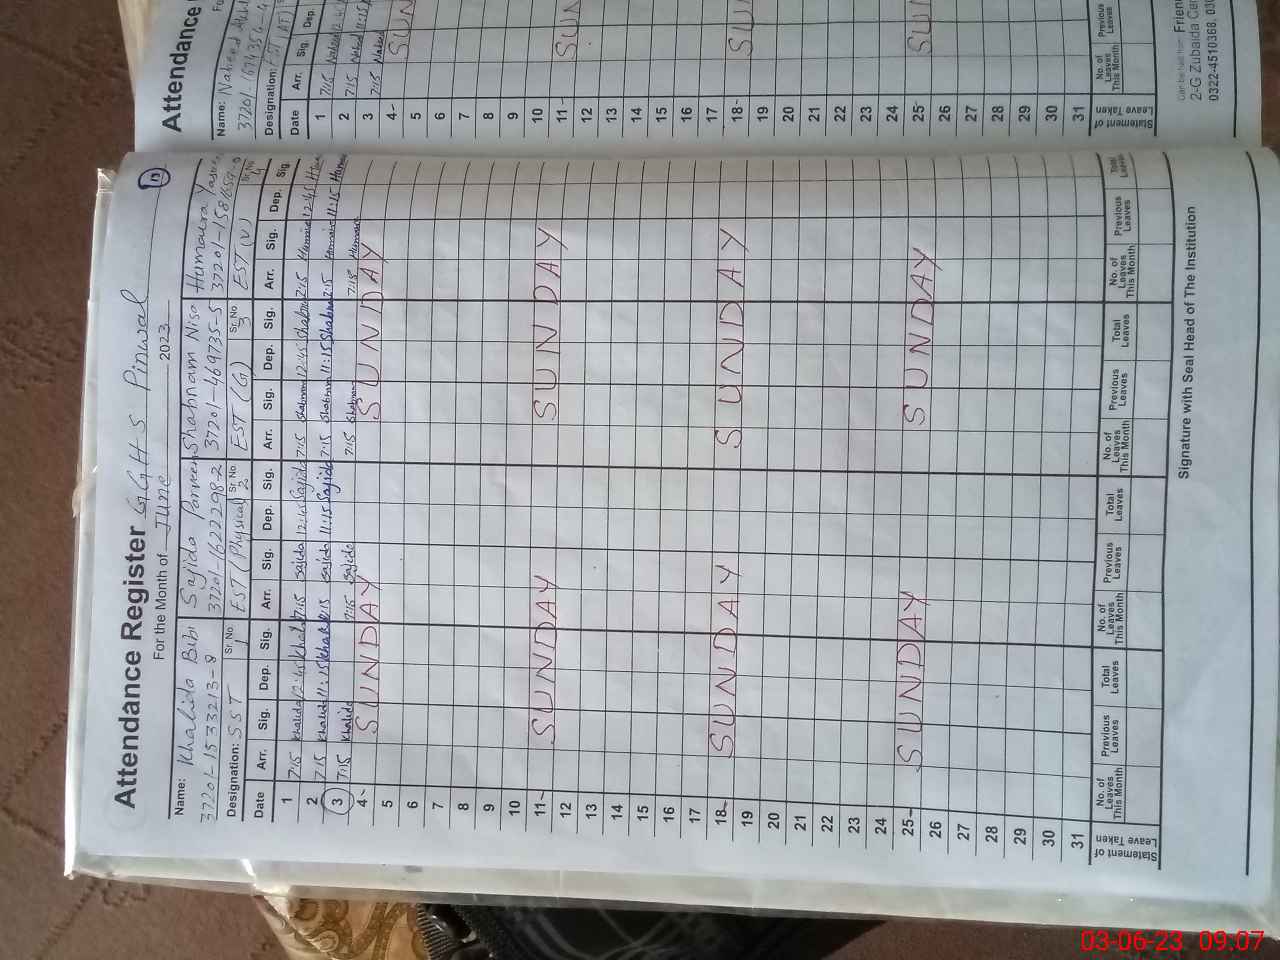 Attendance Register GGHS Pinwal
13
For the Month of June 2023
Name: Khalida Bibi Sajida Parveen Shahnam Nisa Humaira
37201-1533213-8 37201-1622298-2 37201-469735-5 37201-
Designation: SST Sr. No. 1 EST (Physical) Sr. No. 2 EST (G) Sr. No. 3 EST (V) Sr. No. 4
Date Arr. Sig. Dep. Sig. Arr. Sig. Dep. Sig. Arr. Sig. Dep. Sig. Arr. Sig. Dep. Sig.
1 7:15 Khalida 12:45 Khalida 7:15 Sajida 12:45 Sajida 7:15 Shabnam 12:45 Shabnam 7:15 Humaira 12:45
2 7:15 Khalida 11:15 Khalida 7:15 Sajida 11:15 Sajida 7:15 Shabnam 11:15 Shabnam 7:15 Humaira 11:15
3 7:15 Khalida 7:15 Sajida 7:15 Shabnam 7:15 Humaira
4 SUNDAY SUNDAY
5
6
7
8
9
10
11 SUNDAY SUNDAY
12
13
14
15
16
17
18 SUNDAY SUNDAY
19
20
21
22
23
24
25 SUNDAY SUNDAY
26
27
28
29
30
31
Statement of Leave Taken No. of Leaves This Month Previous Leaves Total Leaves No. of Leaves This Month Previous Leaves Total Leaves No. of Leaves This Month Previous Leaves Total Leaves No. of Leaves This Month Previous Leaves Total Leaves
Signature with Seal Head of The Institution
Attendance
Name: Naheed
37201-1674356-4
Designation: EST (AT)
Date Arr. Sig. Dep.
1 7:15
2 7:15
3 7:15
4 SUN
5
6
7
8
9
10
11 SUN
12
13
14
15
16
17
18 SUN
19
20
21
22
23
24
25 SUN
26
27
28
29
30
31
Statement of Leave Taken No. of Leaves This Month Previous Leaves
Can be had from: Friend
2-G Zubaida Cen
0322-4510368, 030
03-06-23 09:07